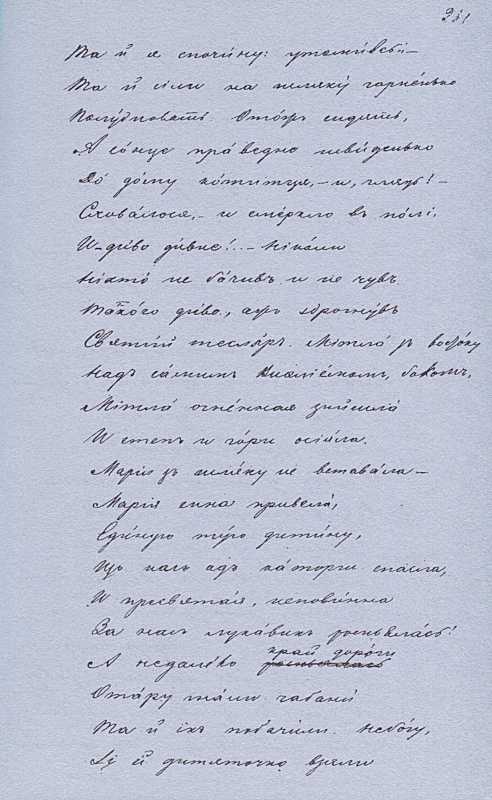 231
Та й я спочи́ну: утоми́всь!—
Та й сіли на шляху́ гарне́нько
Полу́дновать. Ото́жъ сидять,
А со́нце пра́ведно швиде́нько
До до́лу ко́титця,— и, глядь!—
Схова́лося,— и сме́ркло въ по́лі.
И—ди́во ди́вне!..—Ніко́ли
Ніхто́ не ба́чивъ и не чувъ
Тако́го ди́ва, ажъ здрогну́въ
Святи́й тесля́ръ. Мітла́ зъ восто́ку
Надъ са́мимъ бокомъ,
Мітла́ огне́нная зийшла́
И степъ и го́ри осія́ла.
Марія зъ шля́ху не встава́ла—
Марія сина привела́,
Еди́ную ту́ю дити́ну,
Що насъ одъ ка́торги спасла́,
И пресвята́я, непови́нна
За насъ лука́вихъ розпьяла́сь!
А недале́ко край доро́ги
Ота́ру гна́ли чабани́
Та й іхъ поба́чили. Небо́гу,
Іі й дитяточко взяли